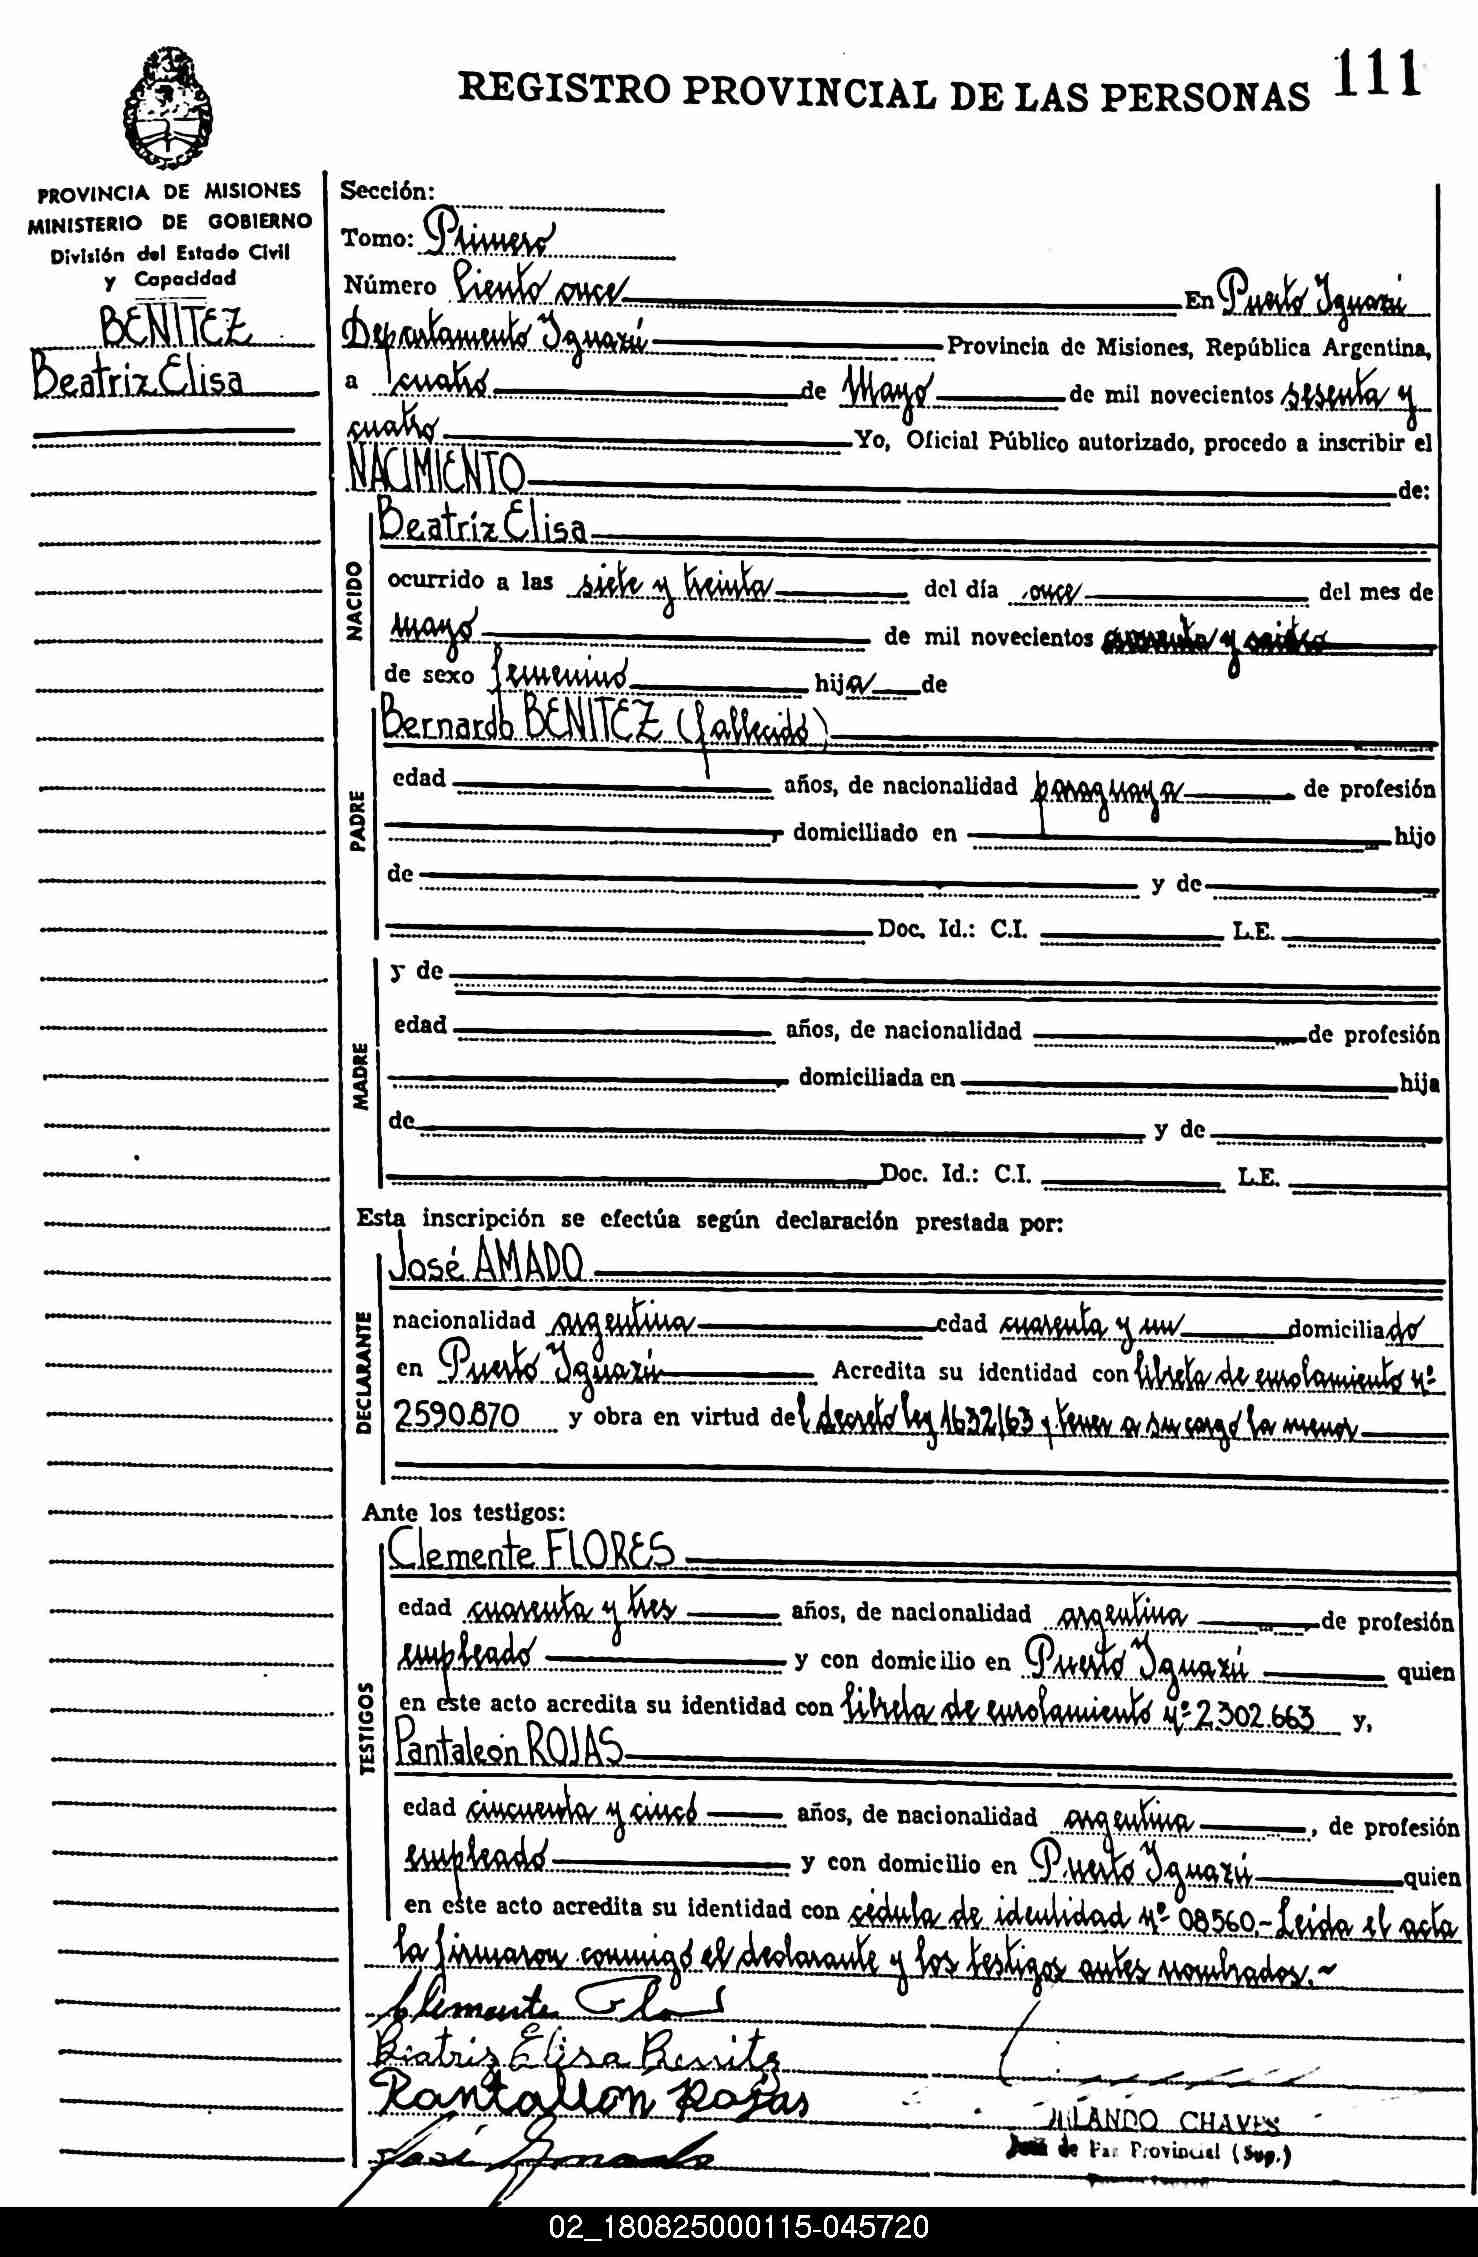 REGISTRO PROVINCIAL DE LAS PERSONAS 111
PROVINCIA DE MISIONES
MINISTERIO DE GOBIERNO
División del Estado Civil
y Capacidad
BENITEZ
Beatriz Elisa
Sección:
Tomo: Primero
Número Ciento once En Puerto Iguazú
Departamento Iguazú Provincia de Misiones, República Argentina,
a cuatro de Mayo de mil novecientos sesenta y
cuatro Yo, Oficial Público autorizado, procedo a inscribir el
NACIMIENTO de:
NACIDO
Beatríz Elisa
ocurrido a las siete y treinta del día once del mes de
mayo de mil novecientos y
de sexo femenino hija de
PADRE
Bernardo BENITEZ (fallecido)
edad años, de nacionalidad paraguaya de profesión
, domiciliado en hijo
de y de
Doc. Id.: C.I. L.E.
MADRE
y de
edad años, de nacionalidad de profesión
, domiciliada en hija
de y de
Doc. Id.: C.I. L.E.
Esta inscripción se efectúa según declaración prestada por:
DECLARANTE
José AMADO
nacionalidad argentina edad cuarenta y un domiciliado
en Puerto Iguazú Acredita su identidad con libreta de enrolamiento nº
2590.870 y obra en virtud del decreto ley 1632/63 y tener a su cargo la menor
Ante los testigos:
TESTIGOS
Clemente FLORES
edad cuarenta y tres años, de nacionalidad argentina de profesión
empleado y con domicilio en Puerto Iguazú quien
en este acto acredita su identidad con libreta de enrolamiento nº 2.302.663 y,
Pantaleón ROJAS
edad cincuenta y cinco años, de nacionalidad argentina, de profesión
empleado y con domicilio en Puerto Iguazú quien
en este acto acredita su identidad con cédula de identidad nº 08560.- Leída el acta
la firmaron conmigo el declarante y los testigos antes nombrados.~
Clemente Flores
Beatriz Elisa Benitz
Pantalion Rojas
José Amado
ORLANDO CHAVES
Juez de Paz Provincial (Sup.)
02_180825000115-045720